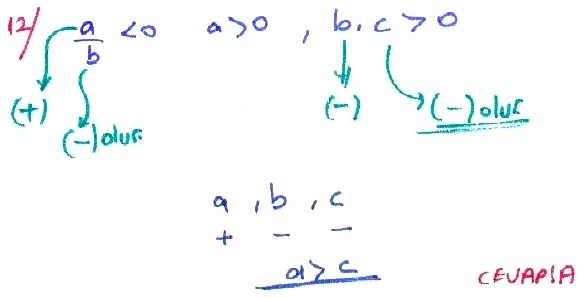 12/ a/b <0 a>0 , b.c >0
(+) (-) olur (-) (-) olur
a , b , c
+ - -
a> c
CEVAP:A